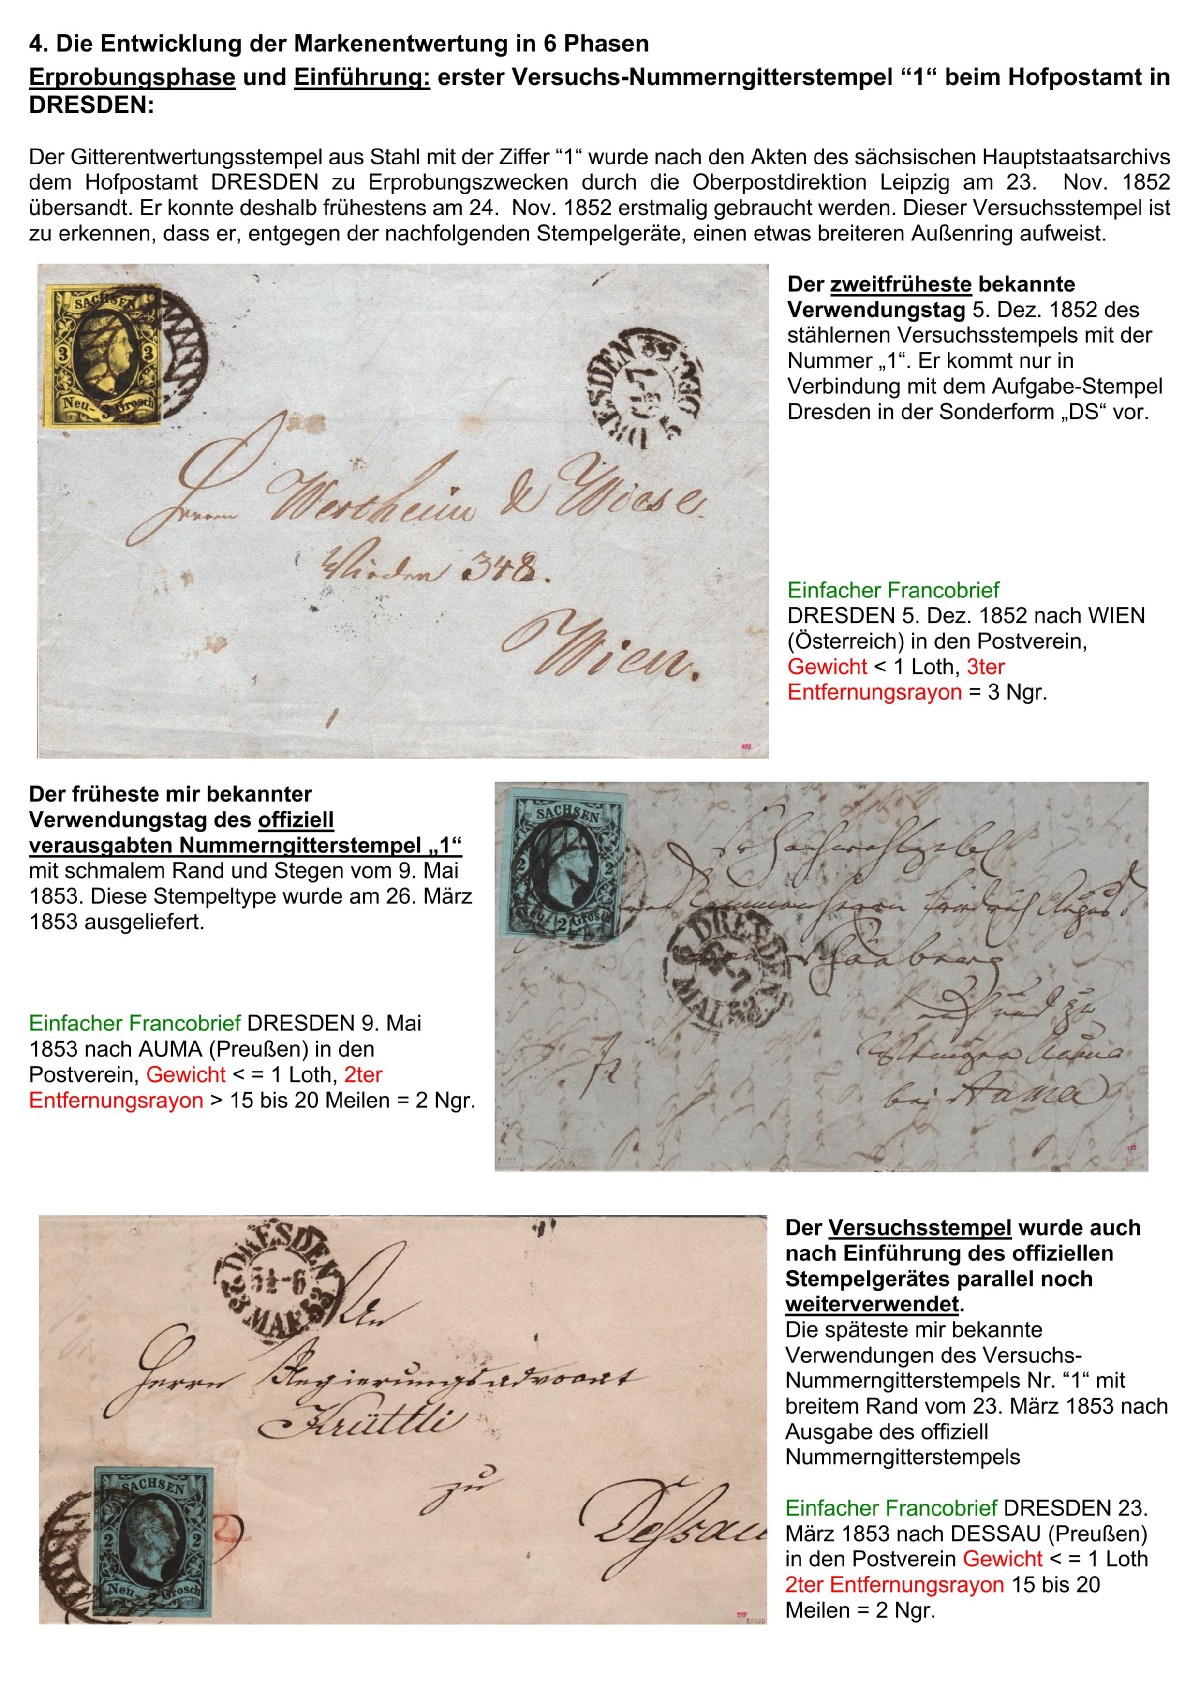 4. Die Entwicklung der Markenentwertung in 6 Phasen
Erprobungsphase und Einführung: erster Versuchs-Nummerngitterstempel “1“ beim Hofpostamt in
DRESDEN:
Der Gitterentwertungsstempel aus Stahl mit der Ziffer “1“ wurde nach den Akten des sächsischen Hauptstaatsarchivs
dem Hofpostamt DRESDEN zu Erprobungszwecken durch die Oberpostdirektion Leipzig am 23. Nov. 1852
übersandt. Er konnte deshalb frühestens am 24. Nov. 1852 erstmalig gebraucht werden. Dieser Versuchsstempel ist
zu erkennen, dass er, entgegen der nachfolgenden Stempelgeräte, einen etwas breiteren Außenring aufweist.
SACHSEN
3 3
Neu- 3 Grosch
DRESDEN 5 DEC 52
Herrn Wertheim & Wiese
Wieden 348.
Wien.
Der zweitfrüheste bekannte
Verwendungstag 5. Dez. 1852 des
stählernen Versuchsstempels mit der
Nummer „1“. Er kommt nur in
Verbindung mit dem Aufgabe-Stempel
Dresden in der Sonderform „DS“ vor.
Einfacher Francobrief
DRESDEN 5. Dez. 1852 nach WIEN
(Österreich) in den Postverein,
Gewicht < 1 Loth, 3ter
Entfernungsrayon = 3 Ngr.
Der früheste mir bekannter
Verwendungstag des offiziell
verausgabten Nummerngitterstempel „1“
mit schmalem Rand und Stegen vom 9. Mai
1853. Diese Stempeltype wurde am 26. März
1853 ausgeliefert.
Einfacher Francobrief DRESDEN 9. Mai
1853 nach AUMA (Preußen) in den
Postverein, Gewicht < = 1 Loth, 2ter
Entfernungsrayon > 15 bis 20 Meilen = 2 Ngr.
SACHSEN
2 2
Neu- 2 Grosch
DRESDEN
MAI 53
bei Auma
DRESDEN
5½-6
23 MAE 53
An
Herrn Regierungsadvocat
Krüttli
zu
Dessau
SACHSEN
2 2
Neu- 2 Grosch
Der Versuchsstempel wurde auch
nach Einführung des offiziellen
Stempelgerätes parallel noch
weiterverwendet.
Die späteste mir bekannte
Verwendungen des Versuchs-
Nummerngitterstempels Nr. “1“ mit
breitem Rand vom 23. März 1853 nach
Ausgabe des offiziell
Nummerngitterstempels
Einfacher Francobrief DRESDEN 23.
März 1853 nach DESSAU (Preußen)
in den Postverein Gewicht < = 1 Loth
2ter Entfernungsrayon 15 bis 20
Meilen = 2 Ngr.